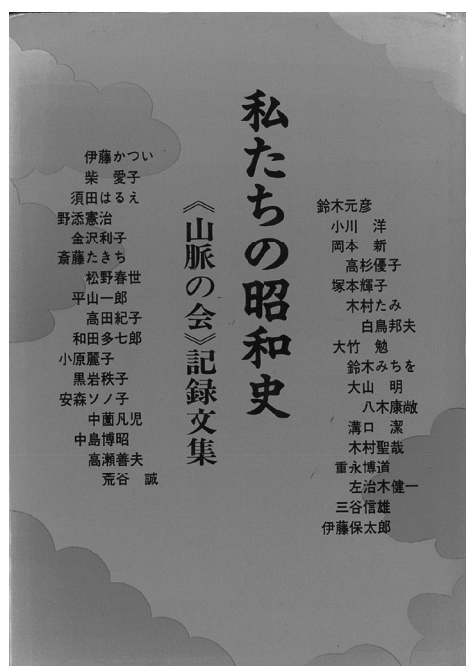 私たちの昭和史
《山脈の会》記録文集
鈴木元彦
小川　洋
岡本　新
高杉優子
塚本輝子
木村たみ
白鳥邦夫
大竹　勉
鈴木みちを
大山　明
八木康敞
溝口　潔
木村聖哉
重永博道
左治木健一
三谷信雄
伊藤保太郎
伊藤かつい
柴　愛子
須田はるえ
野添憲治
金沢利子
斎藤たきち
松野春世
平山一郎
高田紀子
和田多七郎
小原麗子
黒岩秩子
安森ソノ子
中薗凡児
中島博昭
高瀬善夫
荒谷　誠